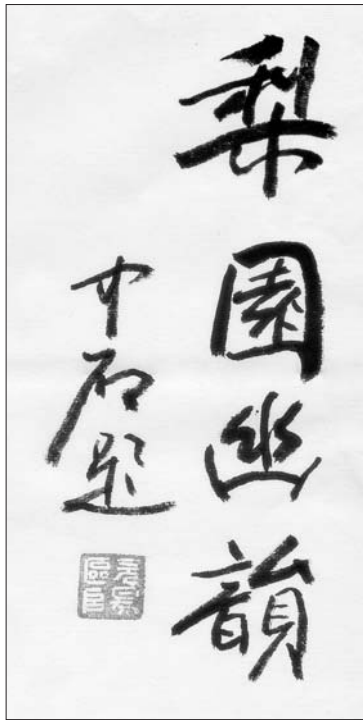 梨園幽韻
中石題